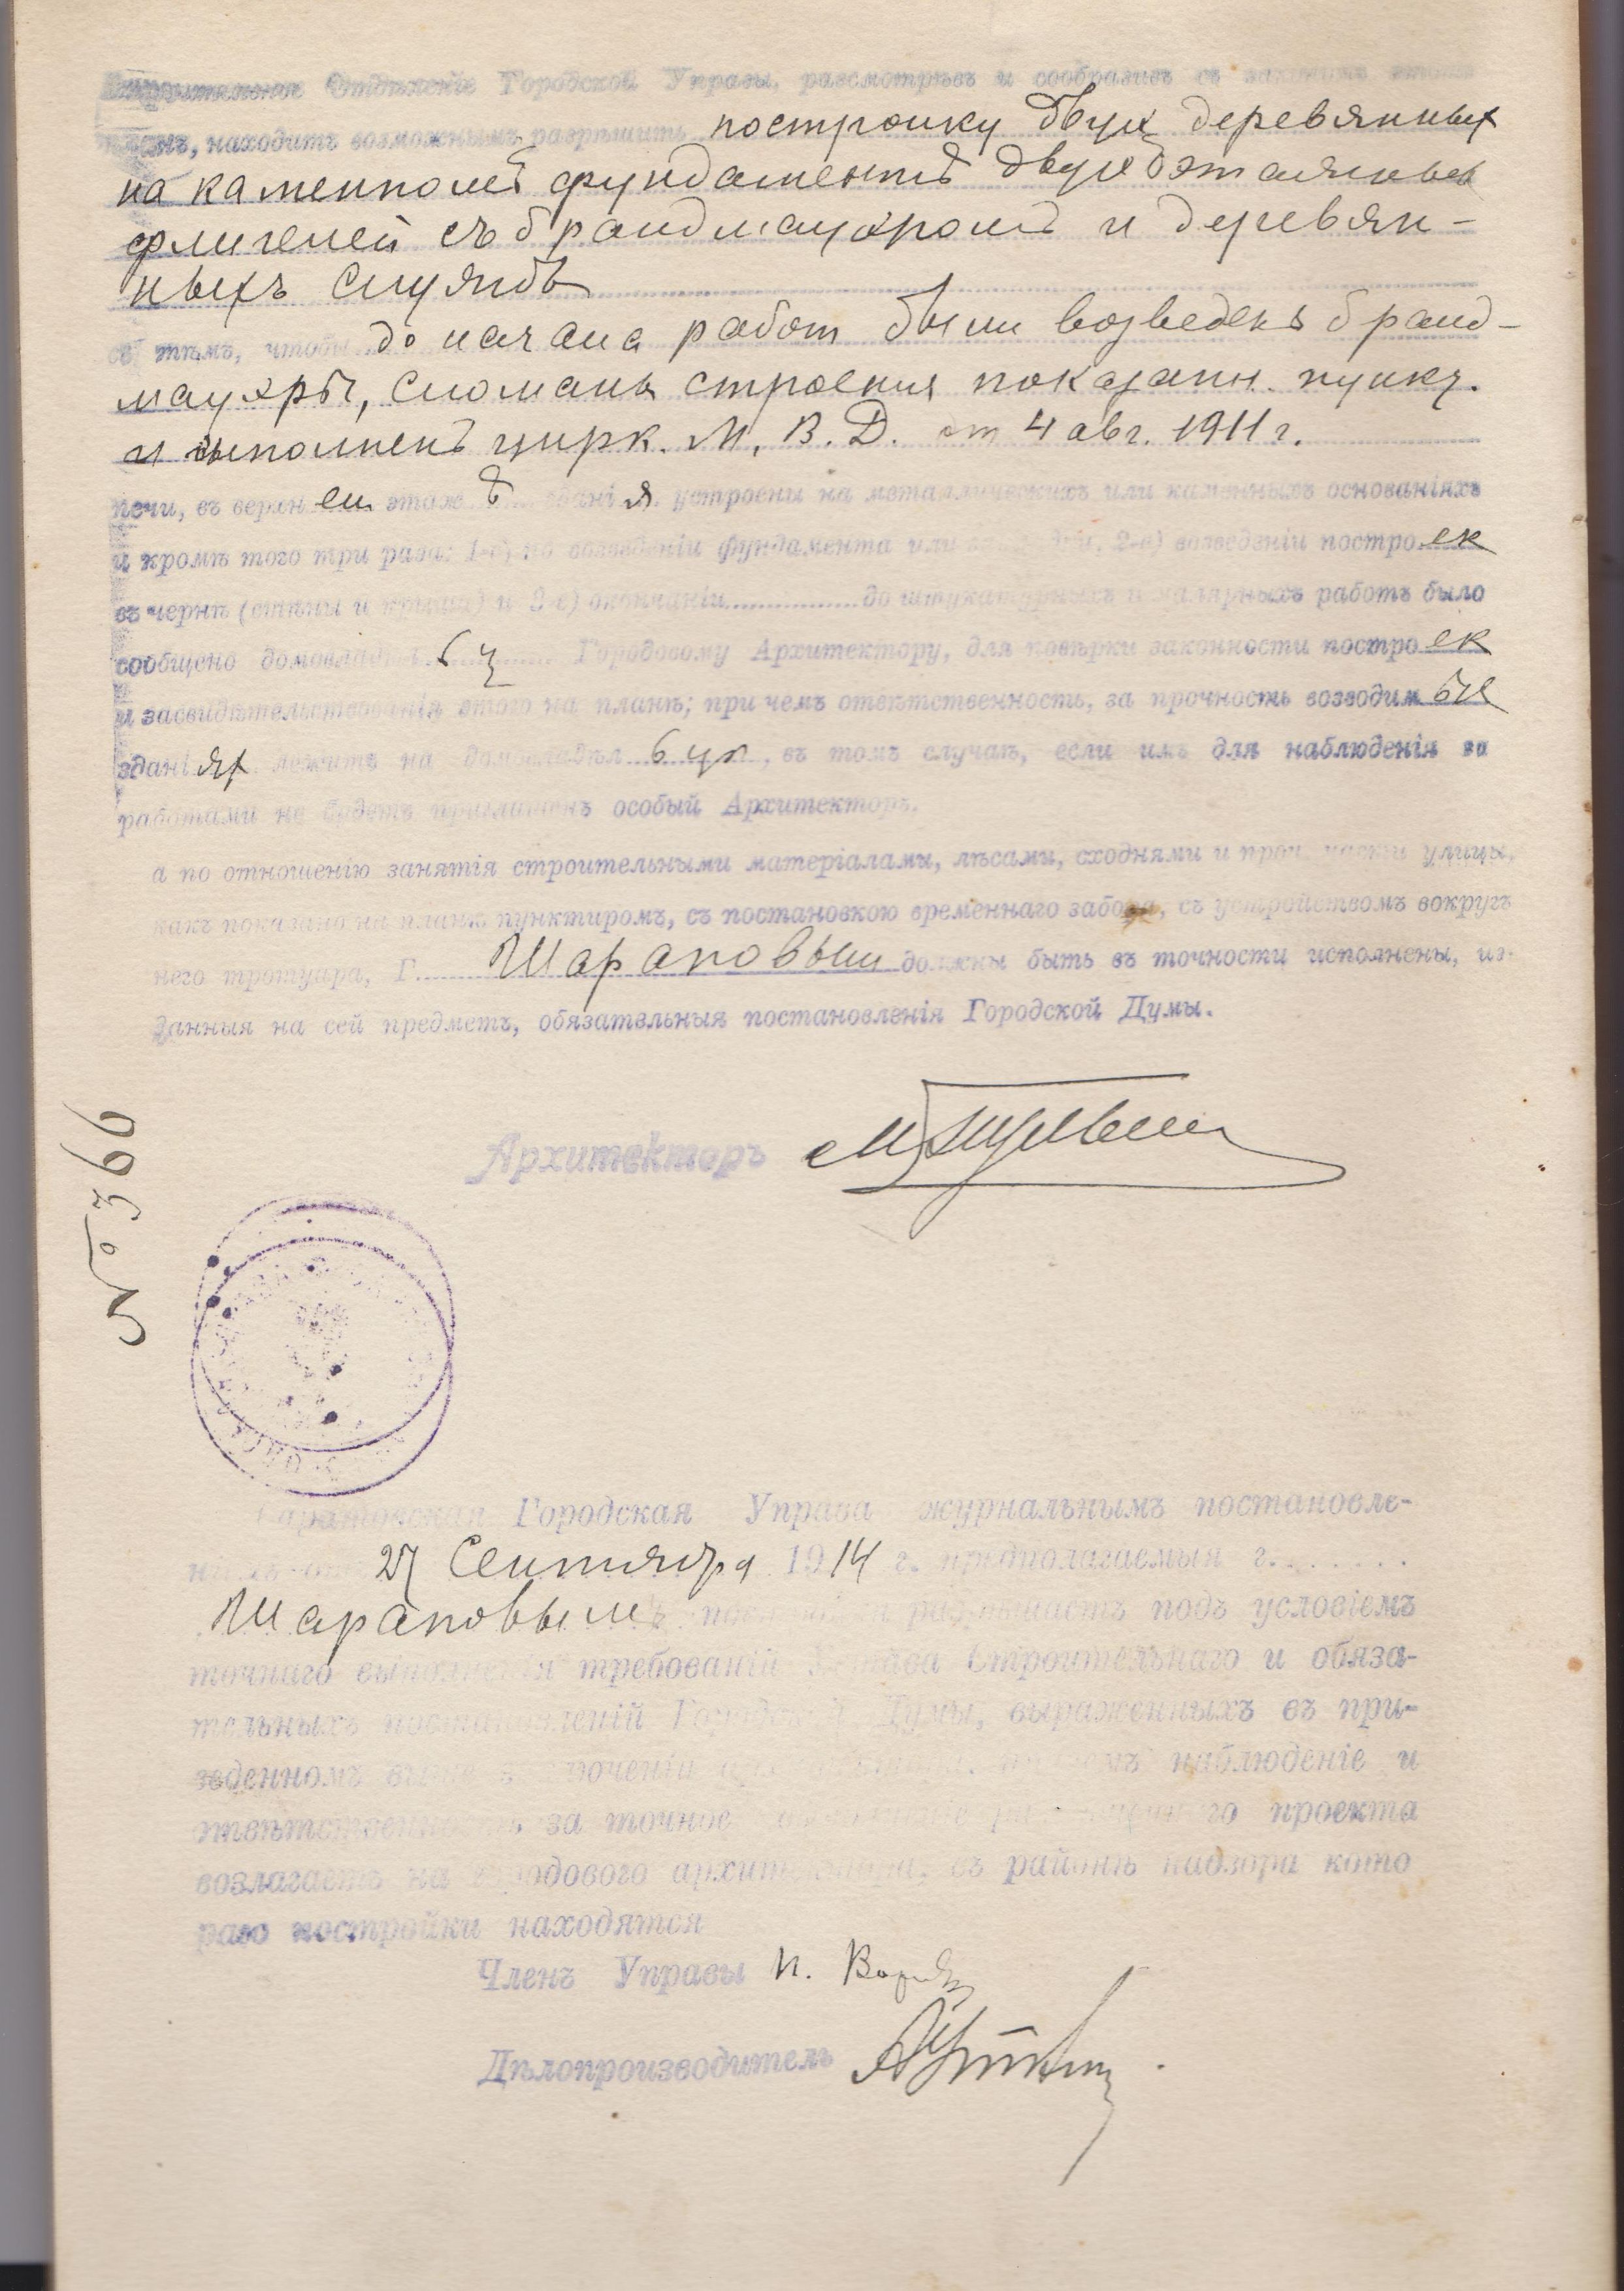 Строительное Отдѣленіе Городской Управы, разсмотрѣвъ и сообразивъ съ закономъ
планъ, находитъ возможнымъ разрѣшить постройку двухъ деревянныхъ
на каменномъ фундаментѣ двухъэтажныхъ
флигелей съ брандмауэромъ и деревян-
ныхъ службъ
съ тѣмъ, чтобы до начала работ были возведены бранд-
мауэры, сломаны строения показанн. пункт.
и выполненъ цирк. М. В. Д. от 4 авг. 1911 г.
печи, въ верхнем этажѣ зданія устроены на металлическихъ или каменныхъ основаніяхъ
и кромѣ того три раза: 1-е) по возведеніи фундамента или 2-е) возведеніи построек
въ чернѣ (стѣны и крыши) и 3-е) окончаніи до штукатурныхъ и малярныхъ работъ было
сообщено домовладѣл Городовому Архитектору, для повѣрки законности построек
и засвидѣтельствованія этого на планѣ; при чемъ отвѣтственность, за прочность возводимых
зданіях лежитъ на домовладѣл , въ томъ случаѣ, если имъ для наблюденія за
работами не будетъ приглашенъ особый Архитекторъ.
а по отношенію занятія строительными матеріалами, лѣсами, сходнями и проч. части улицы,
какъ показано на планѣ пунктиромъ, съ постановкою временнаго забора, съ устройствомъ вокругъ
него тротуара, Г. Шараповым должны быть въ точности исполнены, из-
данныя на сей предметъ, обязательныя постановленія Городской Думы.
Архитекторъ
№ 366
Саратовская Городская Управа журнальнымъ постановле-
ніемъ отъ 27 Сентября 1914 г. предполагаемыя г.
Шараповымъ постройки разрѣшаетъ подъ условіемъ
точнаго выполненія требованій Устава Строительнаго и обяза-
тельныхъ постановленій Городской Думы, выраженныхъ въ при-
веденномъ выше наблюденіе и
отвѣтственность за точное проекта
возлагаетъ на городового архитектора, въ районѣ надзора кото
раго постройки находятся
Членъ Управы П.
Дѣлопроизводитель